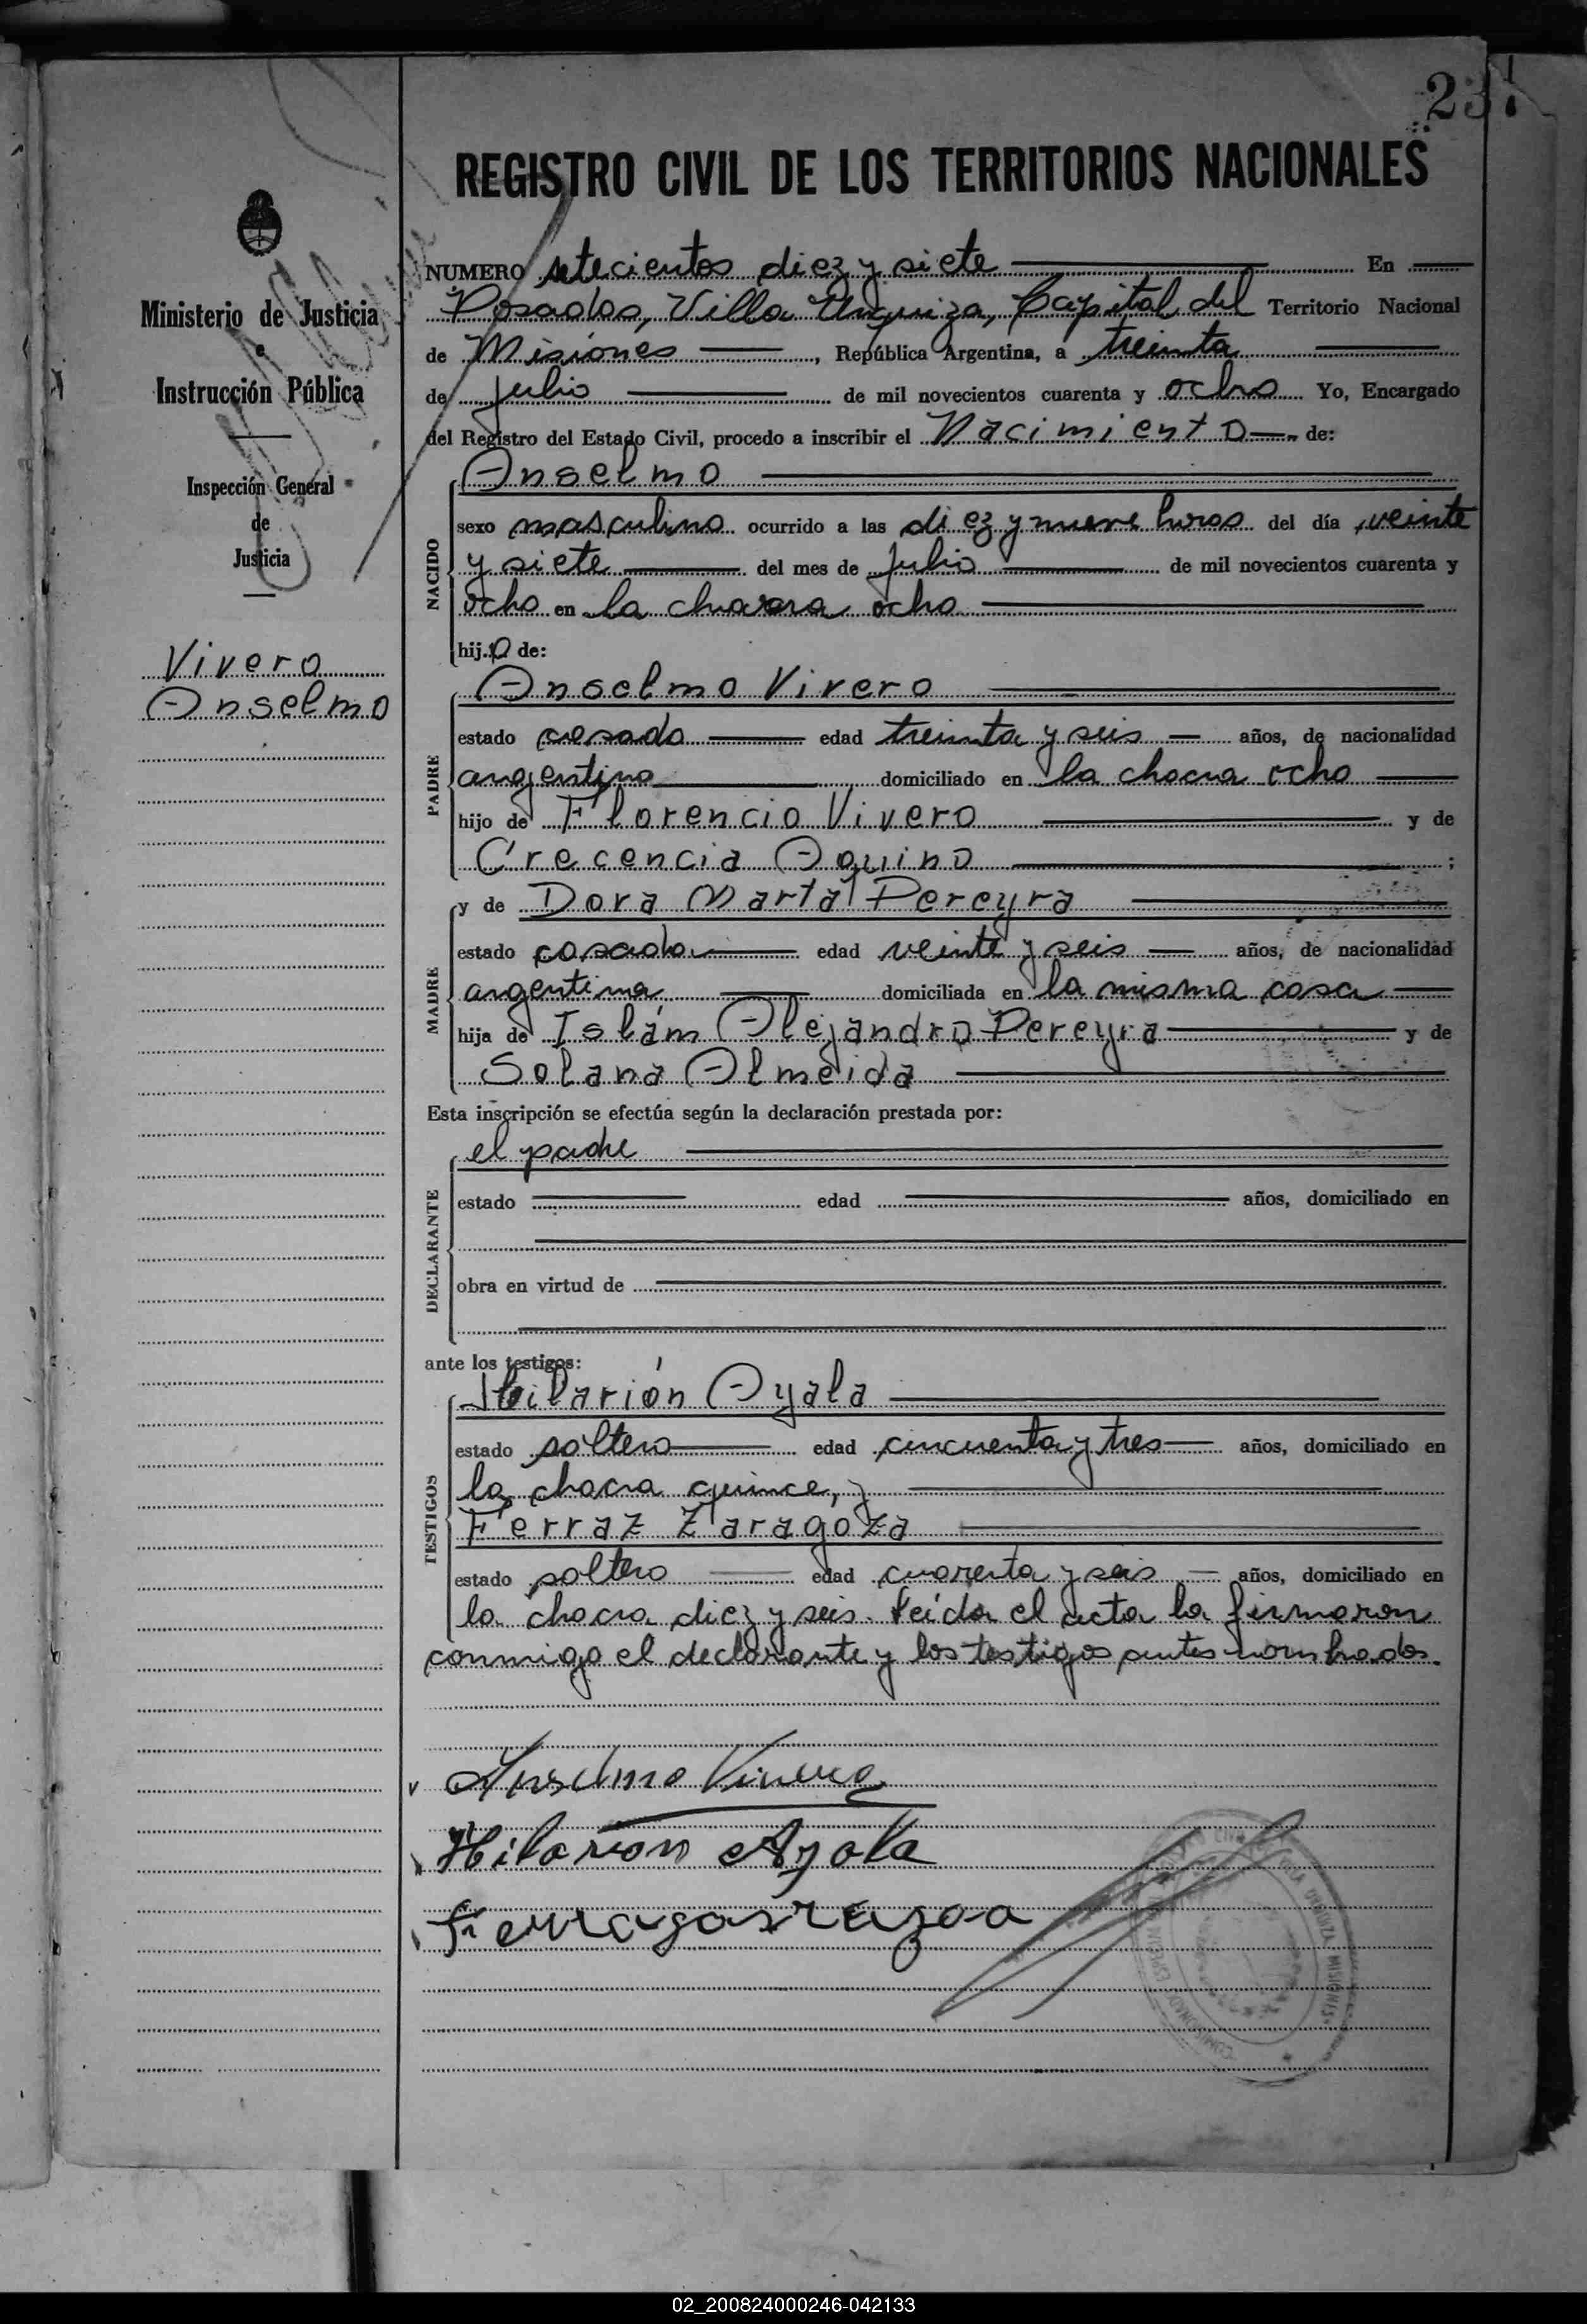 237
REGISTRO CIVIL DE LOS TERRITORIOS NACIONALES
Ministerio de Justicia
e
Instrucción Pública
Inspección General
de
Justicia
Vivero
Anselmo
NUMERO setecientos diez y siete En
Posadas, Villa Urquiza, Capital del Territorio Nacional
de Misiones, República Argentina, a treinta
de Julio de mil novecientos cuarenta y ocho Yo, Encargado
del Registro del Estado Civil, procedo a inscribir el Nacimiento de:
NACIDO
Anselmo
sexo masculino ocurrido a las diez y nueve horas del día veinte
y siete del mes de Julio de mil novecientos cuarenta y
ocho en la chacra ocho
hijo de:
PADRE
Anselmo Vivero
estado casado edad treinta y seis años, de nacionalidad
argentino domiciliado en la chacra ocho
hijo de Florencio Vivero y de
Crecencia Aquino ;
MADRE
y de Dora Marta Pereyra
estado casada edad veinte y seis años, de nacionalidad
argentina domiciliada en la misma casa
hija de Islám Alejandro Pereyra y de
Solana Almeida
Esta inscripción se efectúa según la declaración prestada por:
DECLARANTE
el padre
estado edad años, domiciliado en
obra en virtud de
ante los testigos:
TESTIGOS
Hilarión Ayala
estado soltero edad cincuenta y tres años, domiciliado en
la chacra quince, y
Ferraz Zaragoza
estado soltero edad cuarenta y seis años, domiciliado en
la chacra diez y seis. Leída el acta la firmaron
conmigo el declarante y los testigos antes nombrados.
Anselmo Vivero
Hilarion Ayala
02_200824000246-042133